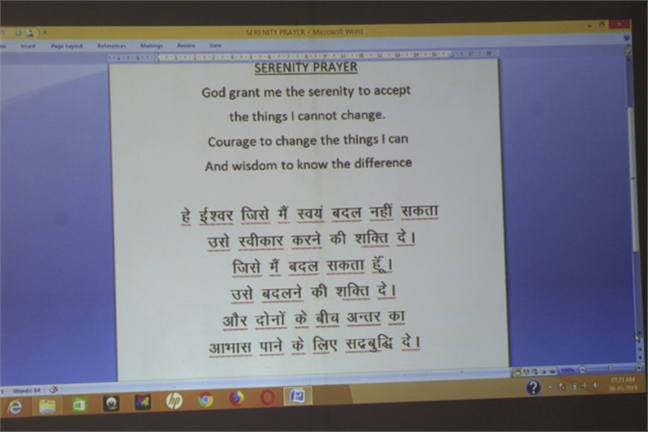 SERENITY PRAYER - Microsoft Word
Insert Page Layout References Mailings Review View
SERENITY PRAYER
God grant me the serenity to accept
the things I cannot change.
Courage to change the things I can
And wisdom to know the difference
हे ईश्वर जिसे मैं स्वयं बदल नहीं सकता
उसे स्वीकार करने की शक्ति दे।
जिसे मैं बदल सकता हूँ।
उसे बदलने की शक्ति दे।
और दोनों के बीच अन्तर का
आभास पाने के लिए सद्बुद्धि दे।
Words: 64
100%
hp